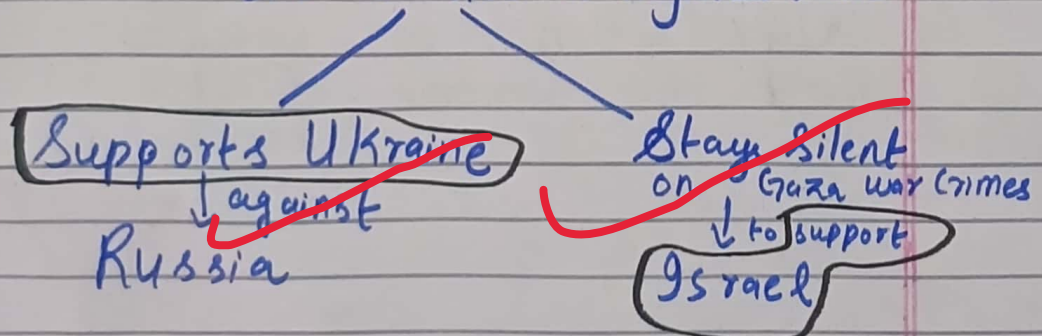 Supports Ukraine
against
Russia
Stays Silent
on Gaza war Crimes
to support
Israel